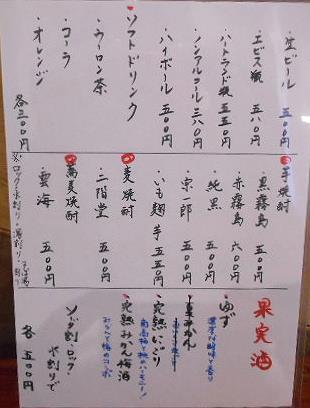 ・生ビール 五〇〇円
・エビス瓶 五八〇円
・ハートランド瓶 五五〇円
・ノンアルコール 三八〇円
・ハイボール 五〇〇円
・ソフトドリンク
・ウーロン茶
・コーラ
・オレンジ
各三〇〇円
・芋焼酎
・黒霧島 五〇〇円
・赤霧島 六〇〇円
・純黒 五〇〇円
・宗一郎 五〇〇円
・いも麹芋 五五〇円
・麦焼酎
・二階堂 五〇〇円
・蕎麦焼酎
・雲海 五〇〇円
※ロック・水割り・湯割り・そば湯割り
果実酒
・ゆず
・夏みかん
・完熟にごり
南高梅と桃のハーモニー!
・完熟みかん梅酒
みかんと梅のコラボ
ソーダ割・ロック
水割りで
各 五〇〇円